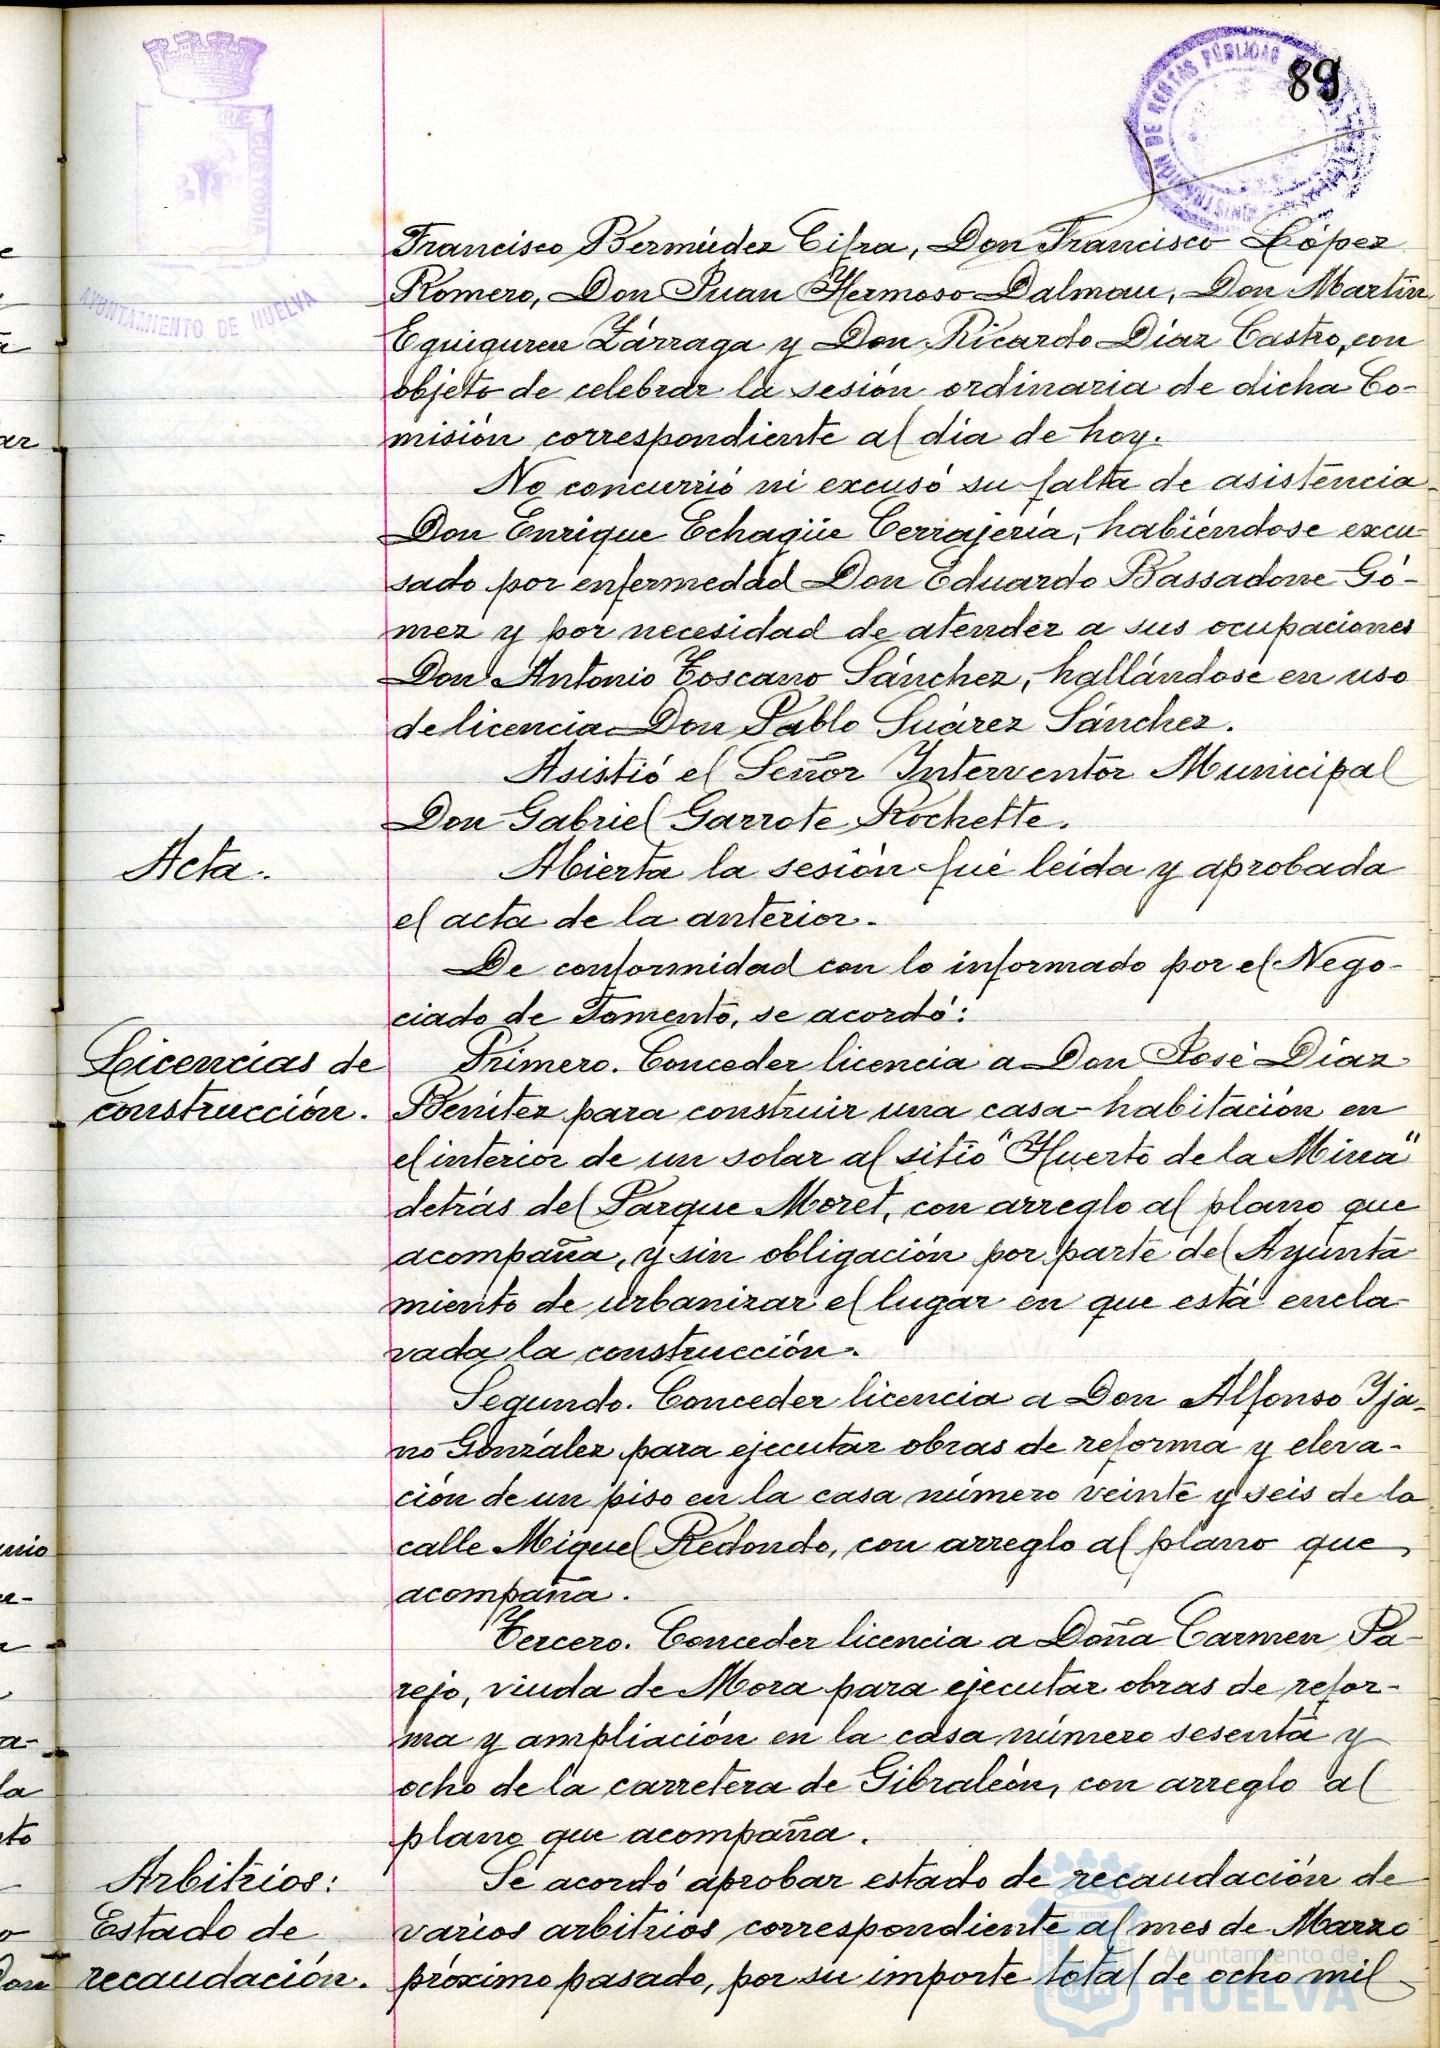 89
AYUNTAMIENTO DE HUELVA
Francisco Bermúdez Cifra, Don Francisco López
Romero, Don Juan Hermoso Dalmau, Don Martín
Eguiguren Zárraga y Don Ricardo Díaz Castro, con
objeto de celebrar la sesión ordinaria de dicha Co-
misión correspondiente al día de hoy.
No concurrió ni excusó su falta de asistencia
Don Enrique Echagüe Cerrajería, habiéndose excu-
sado por enfermedad Don Eduardo Bassadone Gó-
mez y por necesidad de atender a sus ocupaciones
Don Antonio Toscano Sánchez, hallándose en uso
de licencia Don Pablo Suárez Sánchez.
Asistió el Señor Interventor Municipal
Don Gabriel Garrote Rochette.
Acta.
Abierta la sesión fué leída y aprobada
el acta de la anterior.
De conformidad con lo informado por el Nego-
ciado de Fomento, se acordó:
Licencias de
construcción.
Primero. Conceder licencia a Don José Díaz
Benítez para construir una casa-habitación en
el interior de un solar al sitio "Huerto de la Mina"
detrás del Parque Moret, con arreglo al plano que
acompaña, y sin obligación por parte del Ayunta
miento de urbanizar el lugar en que está encla
vada la construcción.
Segundo. Conceder licencia a Don Alfonso Yja-
no González para ejecutar obras de reforma y eleva-
ción de un piso en la casa número veinte y seis de la
calle Miguel Redondo, con arreglo al plano que
acompaña.
Tercero. Conceder licencia a Doña Carmen Pa-
rejo, viuda de Mora para ejecutar obras de refor-
ma y ampliación en la casa número sesenta y
ocho de la carretera de Gibraleón, con arreglo al
plano que acompaña.
Arbitrios:
Estado de
recaudación.
Se acordó aprobar estado de recaudación de
varios arbitrios correspondiente al mes de Marzo
próximo pasado, por su importe total de ocho mil
Ayuntamiento de
HUELVA